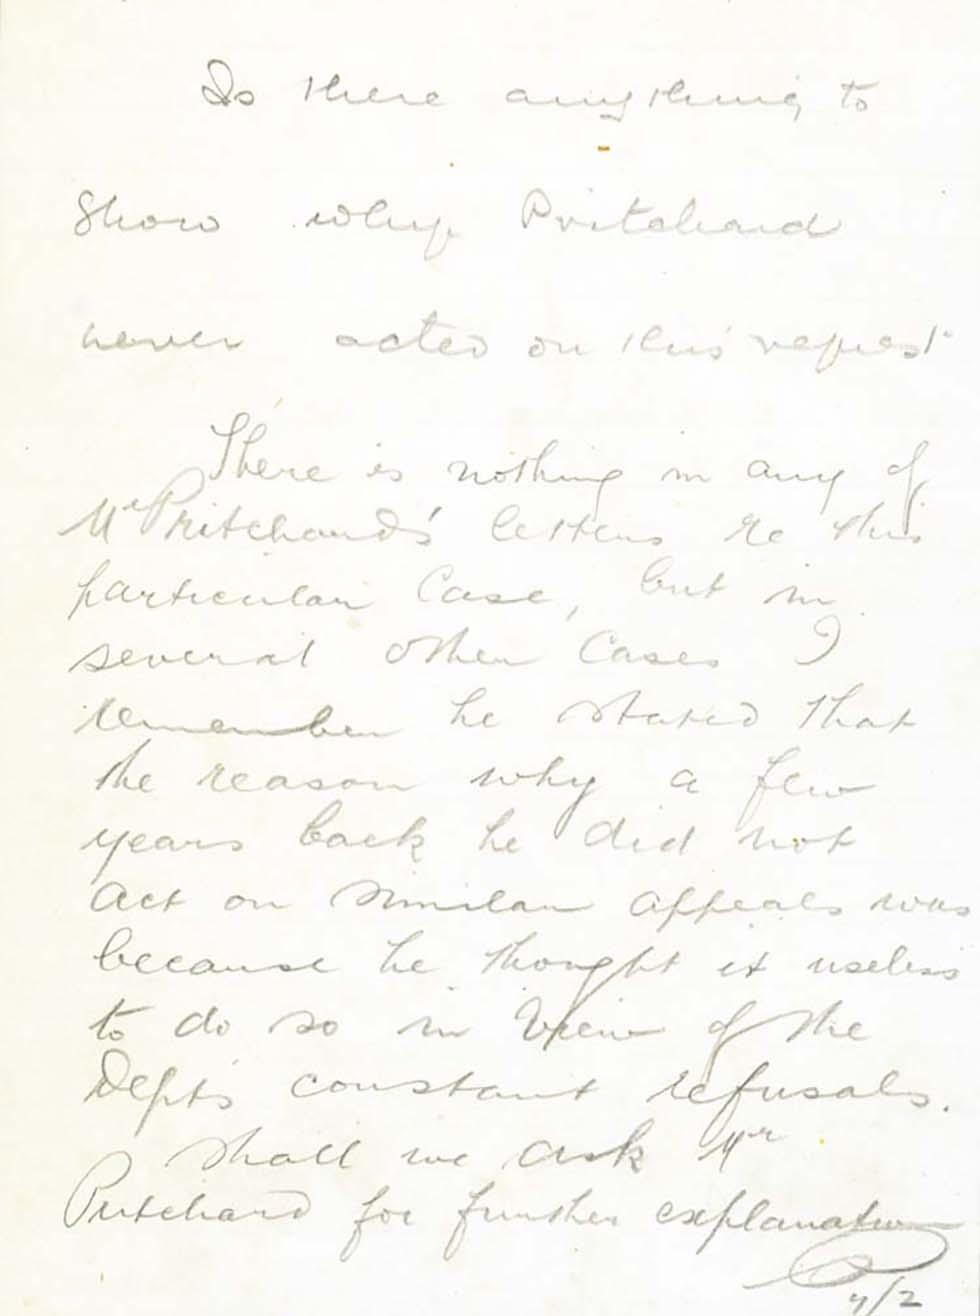 Is there anything to
show why Pritchard
never acted on this request
There is nothing in any of
Mr Pritchard's letters re this
particular Case, but in
several other Cases I
remember he stated that
the reason why a few
years back he did not
act on similar appeals was
because he thought it useless
to do so in view of the
Dept's constant refusals.
Shall we ask Mr
Pritchard for further explanation
7/2